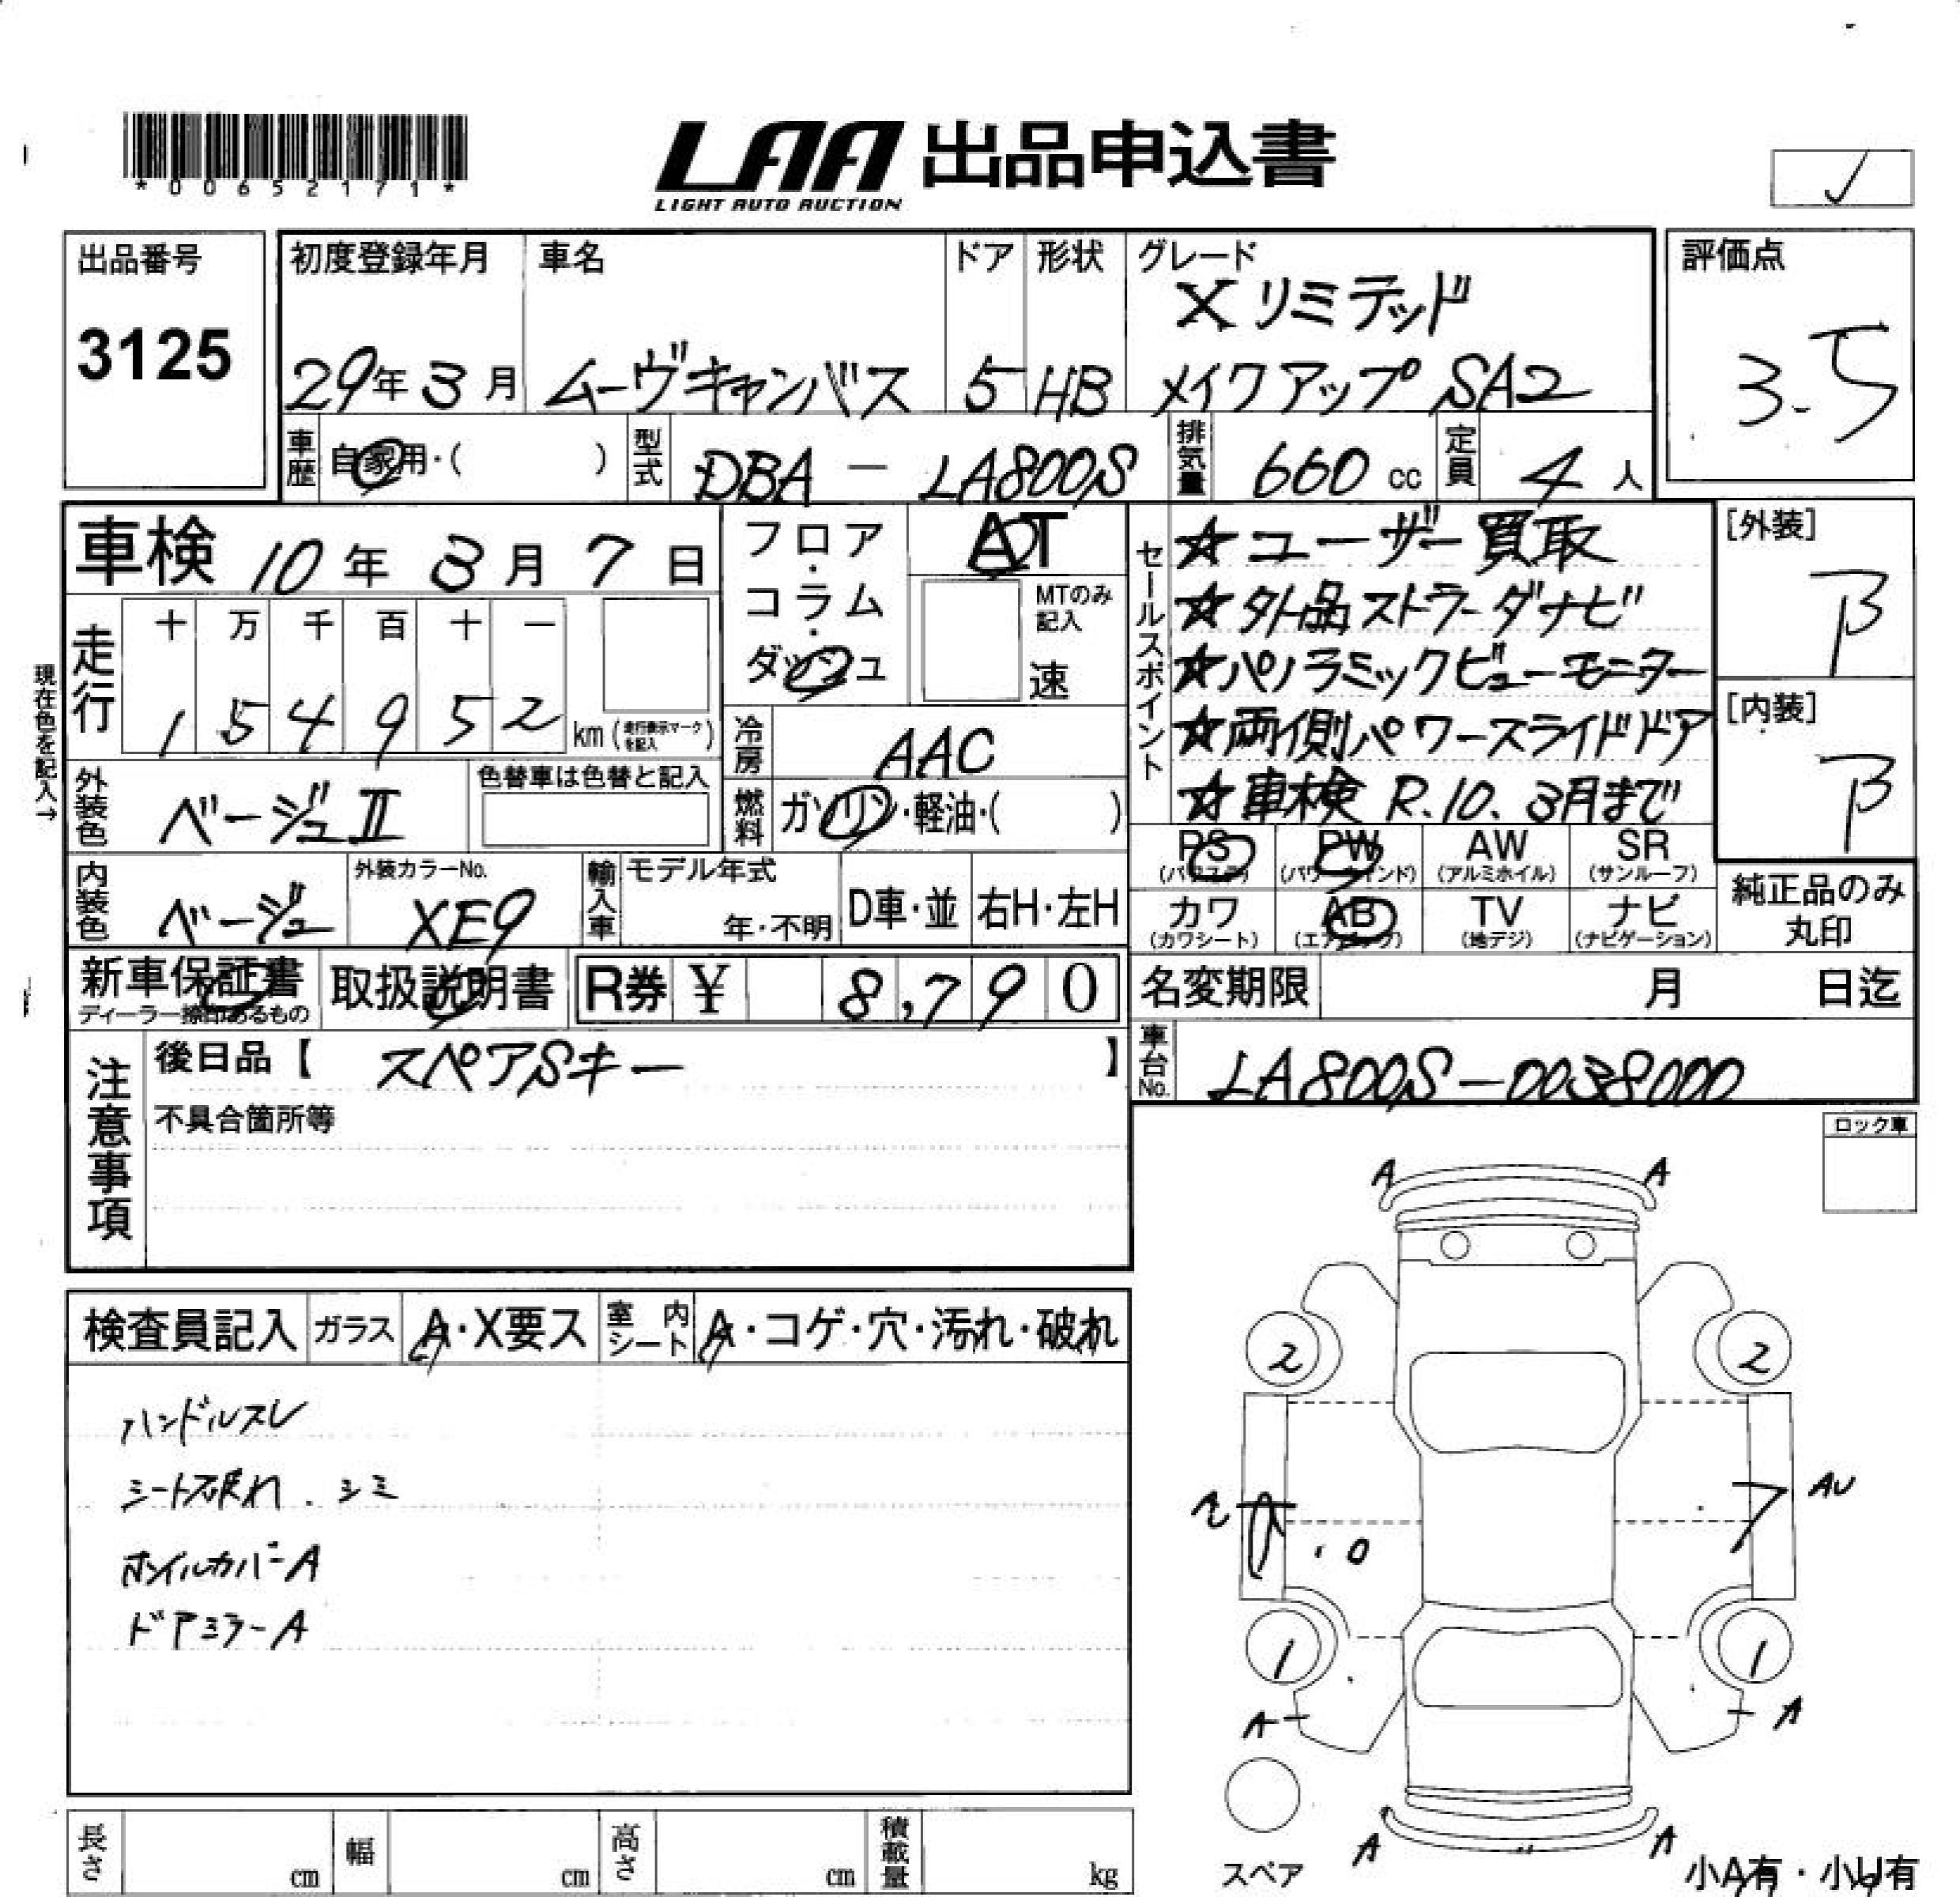 *00652171*
LAA 出品申込書
LIGHT AUTO AUCTION
出品番号
3125
初度登録年月
29年 3月
車名
ムーヴキャンバス
ドア
5
形状
HB
グレード
Xリミテッド
メイクアップ SA2
評価点
3.5
車歴 自家用・( )
型式 DBA - LA800S
排気量 660 cc
定員 4 人
車検 10年 3月 7日
走行
十 万 千 百 十 一
1 5 4 9 5 2 km (走行表示マークを記入)
現在色を記入→
フロア・コラム・ダッシュ
AT
MTのみ記入
速
冷房 AAC
燃料 ガソリン・軽油・( )
外装色 ベージュⅡ
色替車は色替と記入
内装色 ベージュ
外装カラーNo.
XE9
輸入車
モデル年式
年・不明
D車・並
右H・左H
セールスポイント
☆ユーザー買取
☆外品ストラーダナビ
☆パノラミックビューモニター
☆両側パワースライドドア
☆車検 R.10.3月まで
[外装]
B
[内装]
B
PS (パワステ)
PW (パワーウインド)
AW (アルミホイル)
SR (サンルーフ)
カワ (カワシート)
AB (エアバック)
TV (地デジ)
ナビ (ナビゲーション)
純正品のみ
丸印
新車保証書
ディーラー捺印あるもの
取扱説明書
R券 ¥ 8,790
名変期限 月 日迄
車台No. LA800S-0038000
注意事項
後日品【 スペアSキー 】
不具合箇所等
ロック車
検査員記入
ガラス A・X要ス
室内シート A・コゲ・穴・汚れ・破れ
ハンドルスレ
シート破れ.シミ
ホイルカバーA
ドアミラーA
A A
2 2
AU
1 1
A A
A A
スペア
小A有・小U有
長さ cm
幅 cm
高さ cm
積載量 kg